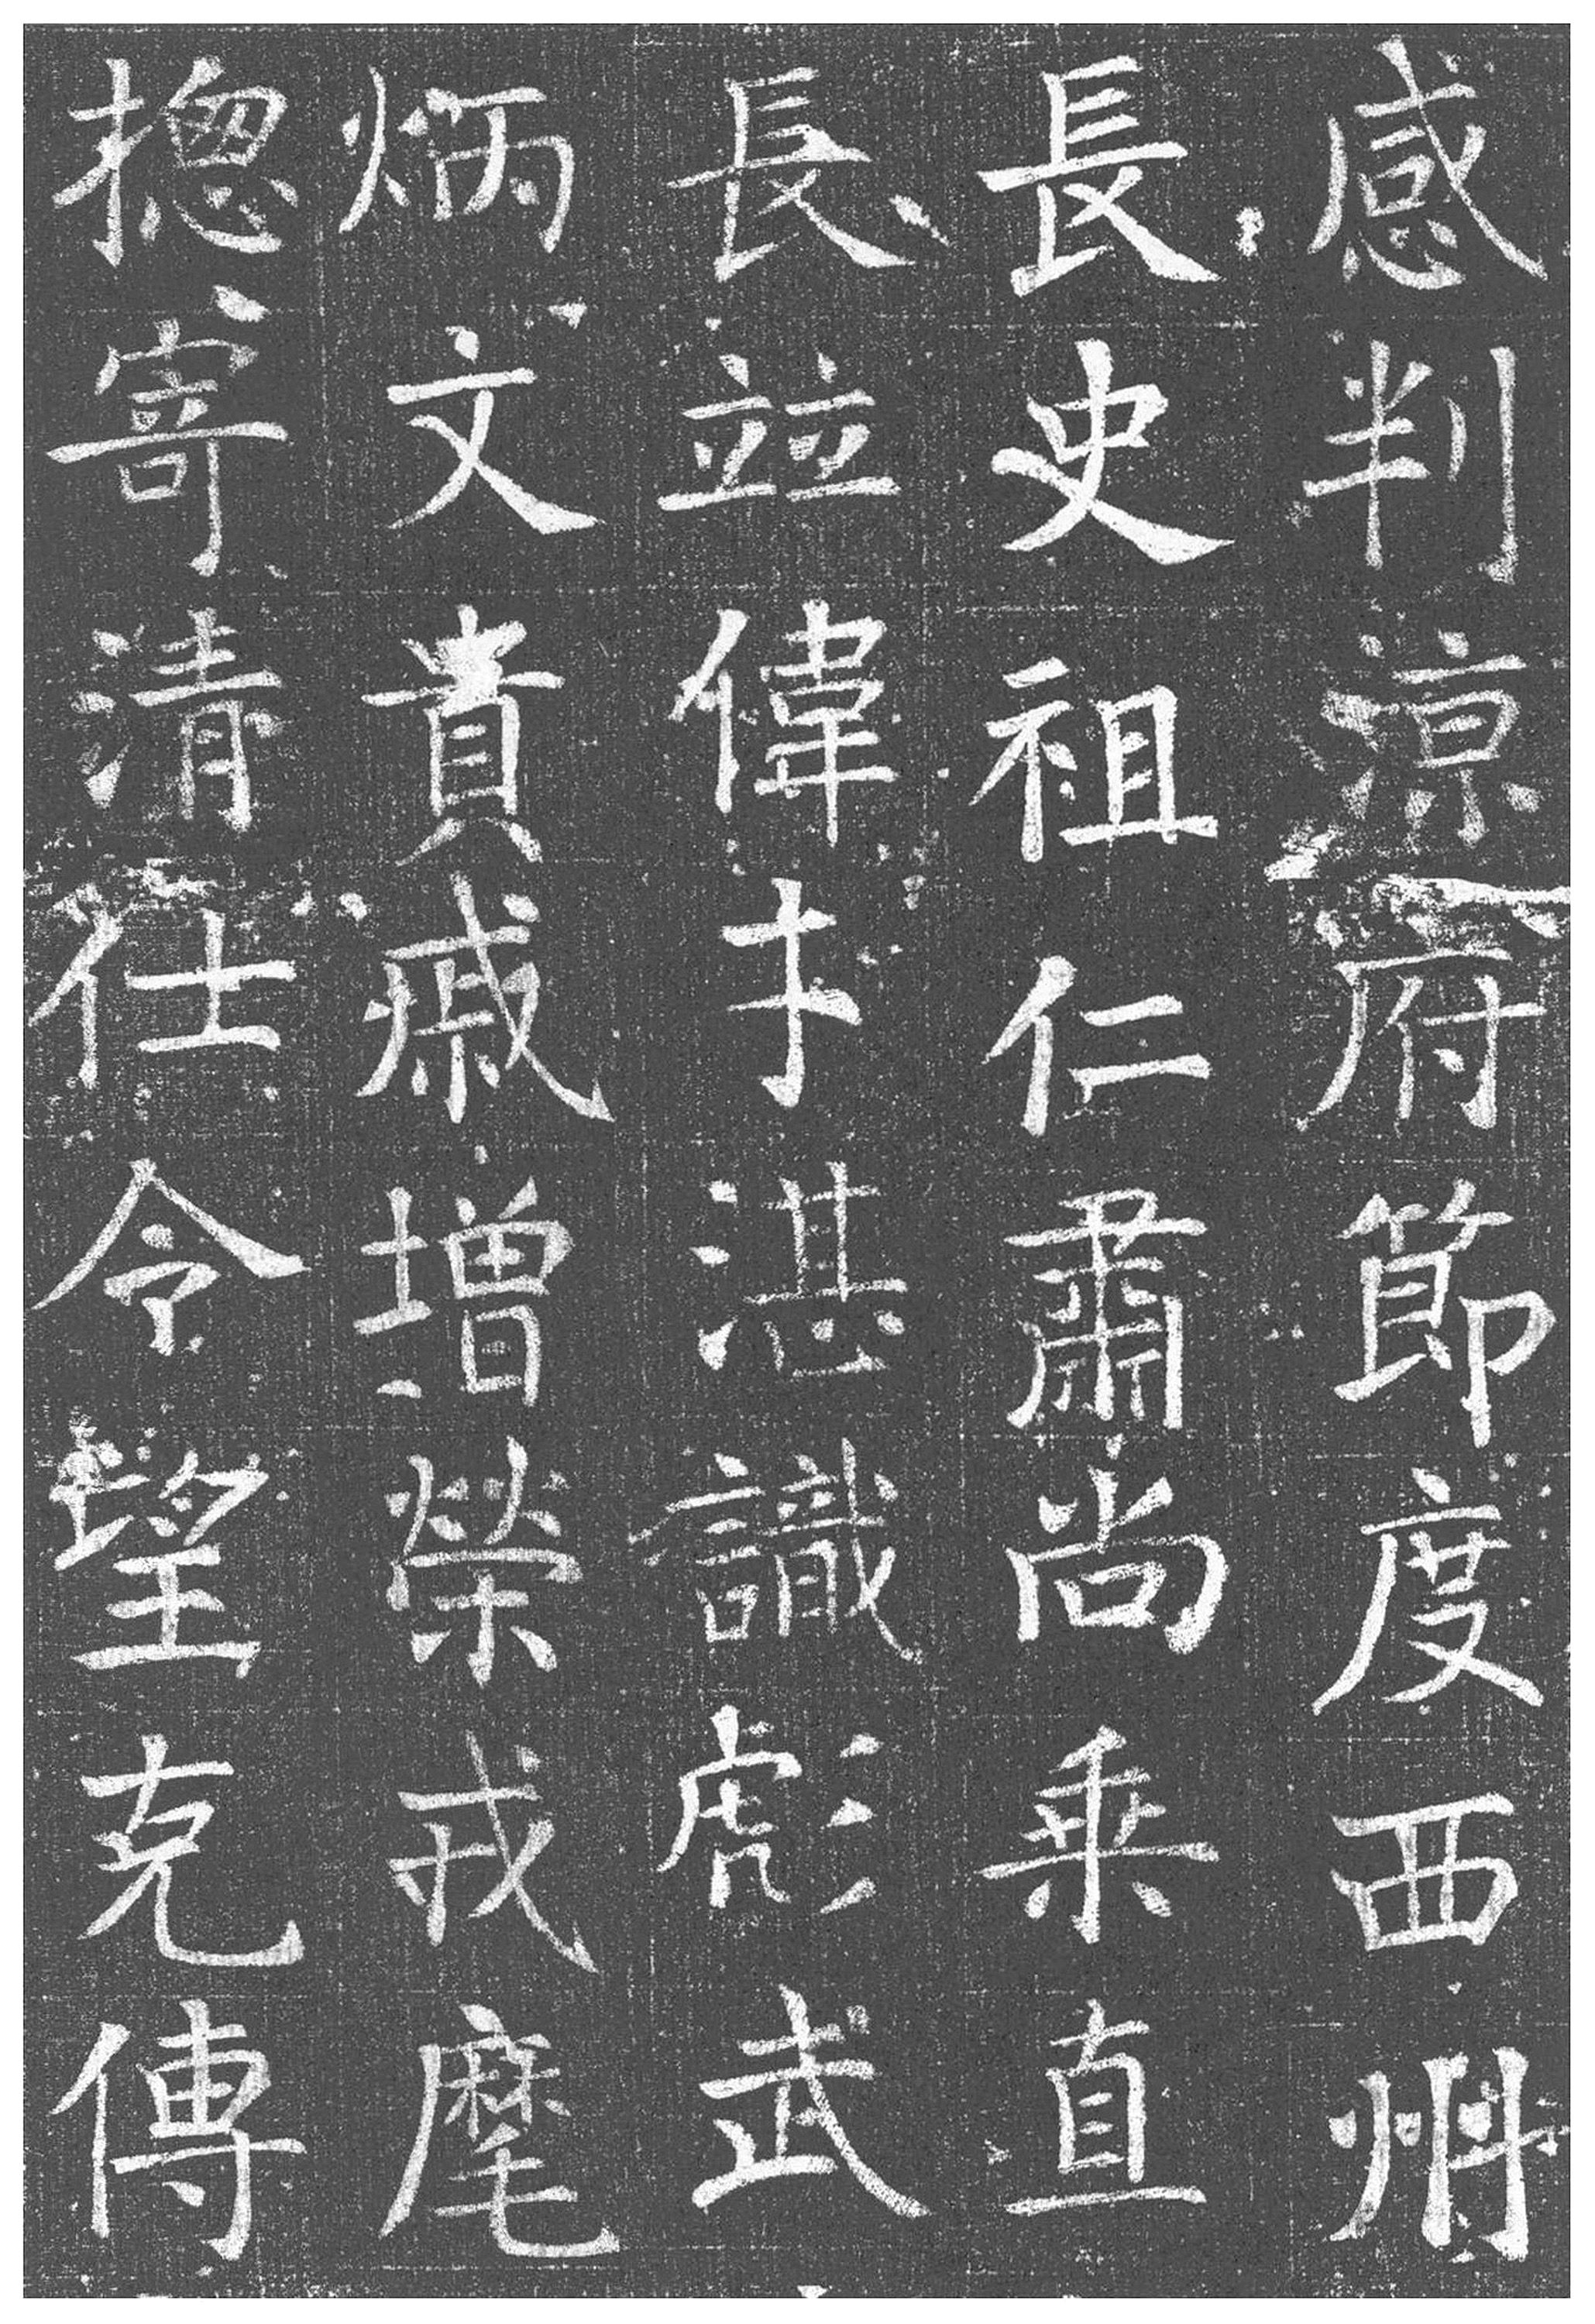 感判涼府節度西州
長史祖仁肅尚乗直
長並偉才湛識彪武
炳文貴戚增榮戎麾
揔寄清任令望克傳